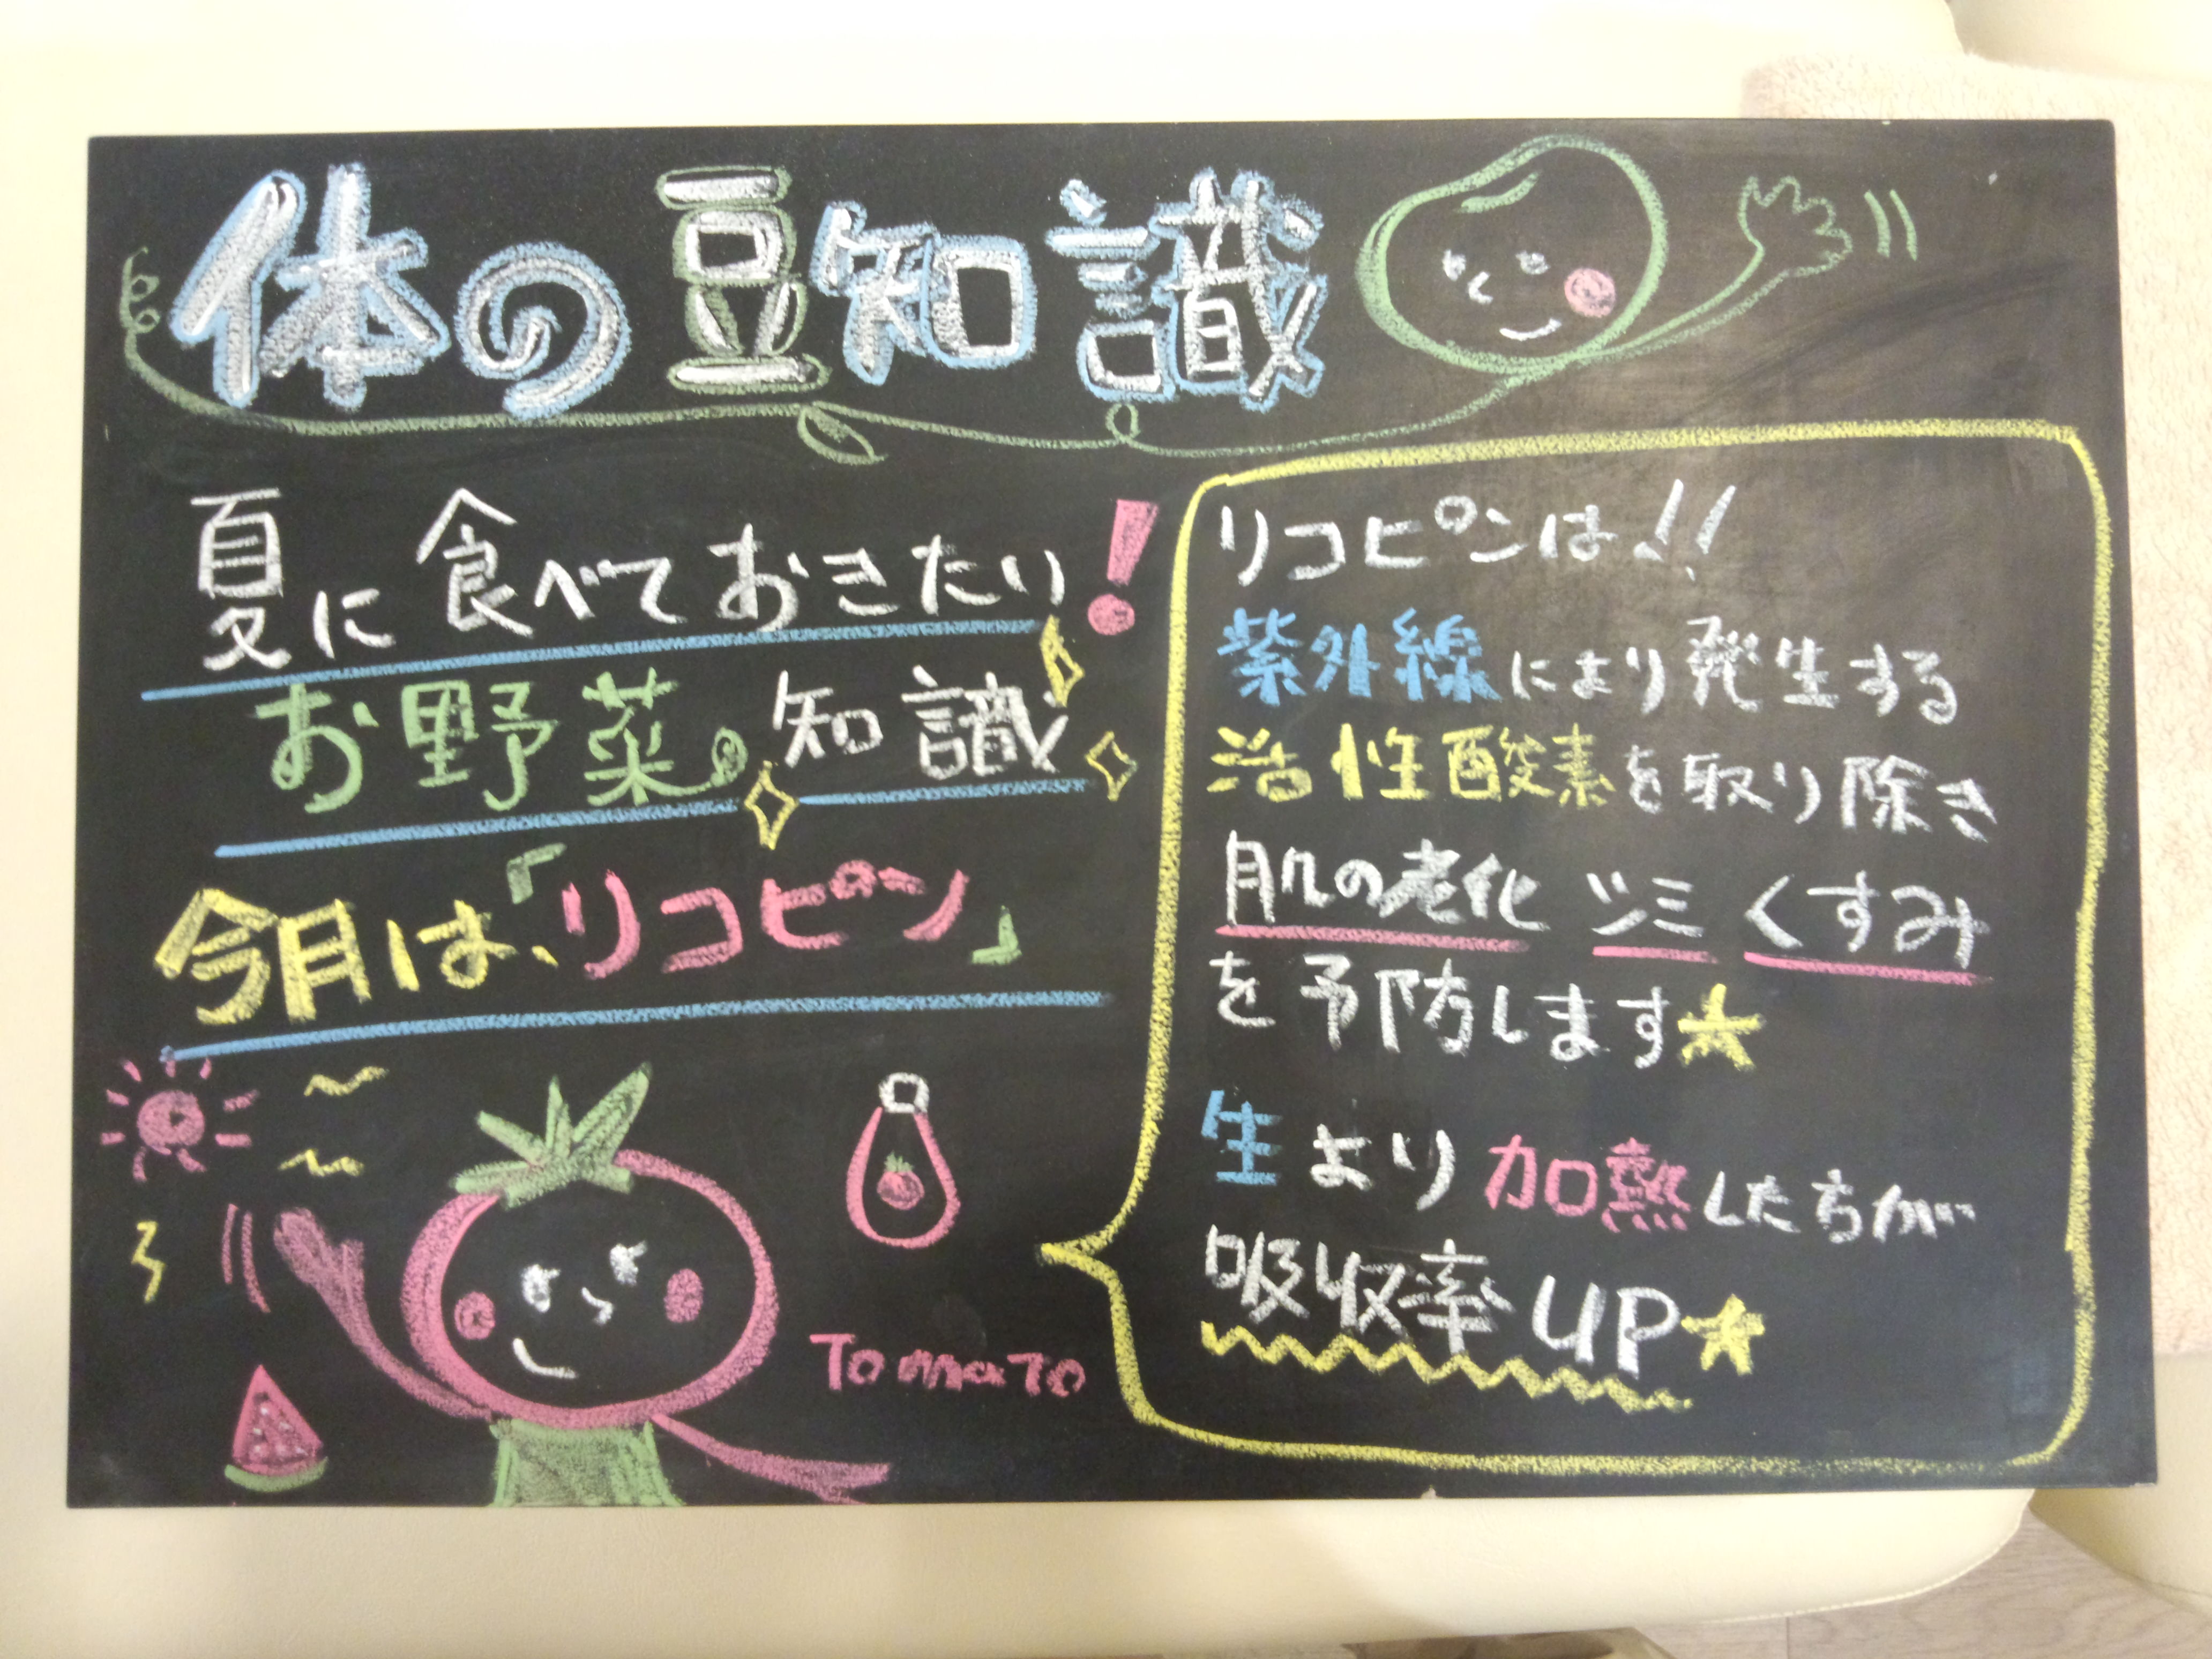 体の豆知識
夏に食べておきたい!
お野菜の知識
今月は、「リコピン」
Tomato
リコピンは!!
紫外線により発生する
活性酸素を取り除き
肌の老化 シミ くすみ
を予防します★
生より加熱した方が
吸収率UP★